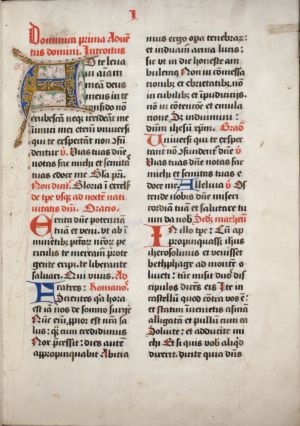 I
Dominica prima Aduen
tus domini. Introitus
Ad te leua
ui aīam
meā deus
meus in te
confido nō
erubescam neqȝ irrideāt me
inimici mei etenim vniuersi
qui te expectāt non cōfū
dentur
Vias tuas dn̄e
notas fac michi et semitas
tuas edoce me Gl̄a pr̄i.
Non dicit̄ Gloria ī excels̄
de tpe vsqȝ ad noctē nati
uitatis dn̄i. Oratio.
Excita dn̄e potenciā
tuā et veni. vt ab
iminētibȝ pctōrȝ nr̄orȝ peri
culis te mereamur protegente
eripi. te liberante
saluari. Qui viuis. Ad
Fratres: Romanos
Scientes qȝ hora
est iā nos de somno surgē
Nūc em̄ ꝓpior est nr̄a sa
lus: qȝ cum credidimus
Nox precessit: dies autē
appropinquabit Abicia
mus ergo opa tenebrarȝ:
et induamur arma lucis:
sic vt in die honeste am
bulemus Non in comessa
cionibȝ et ebrietatibȝ, nō
in cubilibȝ et īpudicitiis,
nō in cōtencione et emula
tione Sȝ induimini
dn̄m ih̄esum xp̄m. Grad
Vniuersi qui te expec
tant nō cōfundent̄ dn̄e
Vias tuas dn̄e notas fac
michi et semitas tuas e
doce me Alleluia
Os
tende nobis dn̄e miseri
cordiā tuā et salutare tu
um da nob̄ Scdȝ matheū
In illo tpe: Cum
appropinquass̄ ih̄us
iherosolimis et venisset
bethphage ad montē o
liueti: tūc misit duos dis
cipulos dicēs eis Ite in
castellū quod cōtra vos ē:
et statim inuenietis asinā
alligatā et pullū cum ea
Soluite: et adducite mi
chi Et si quis vob̄ aliquid
dixerit: dicite quia dn̄s